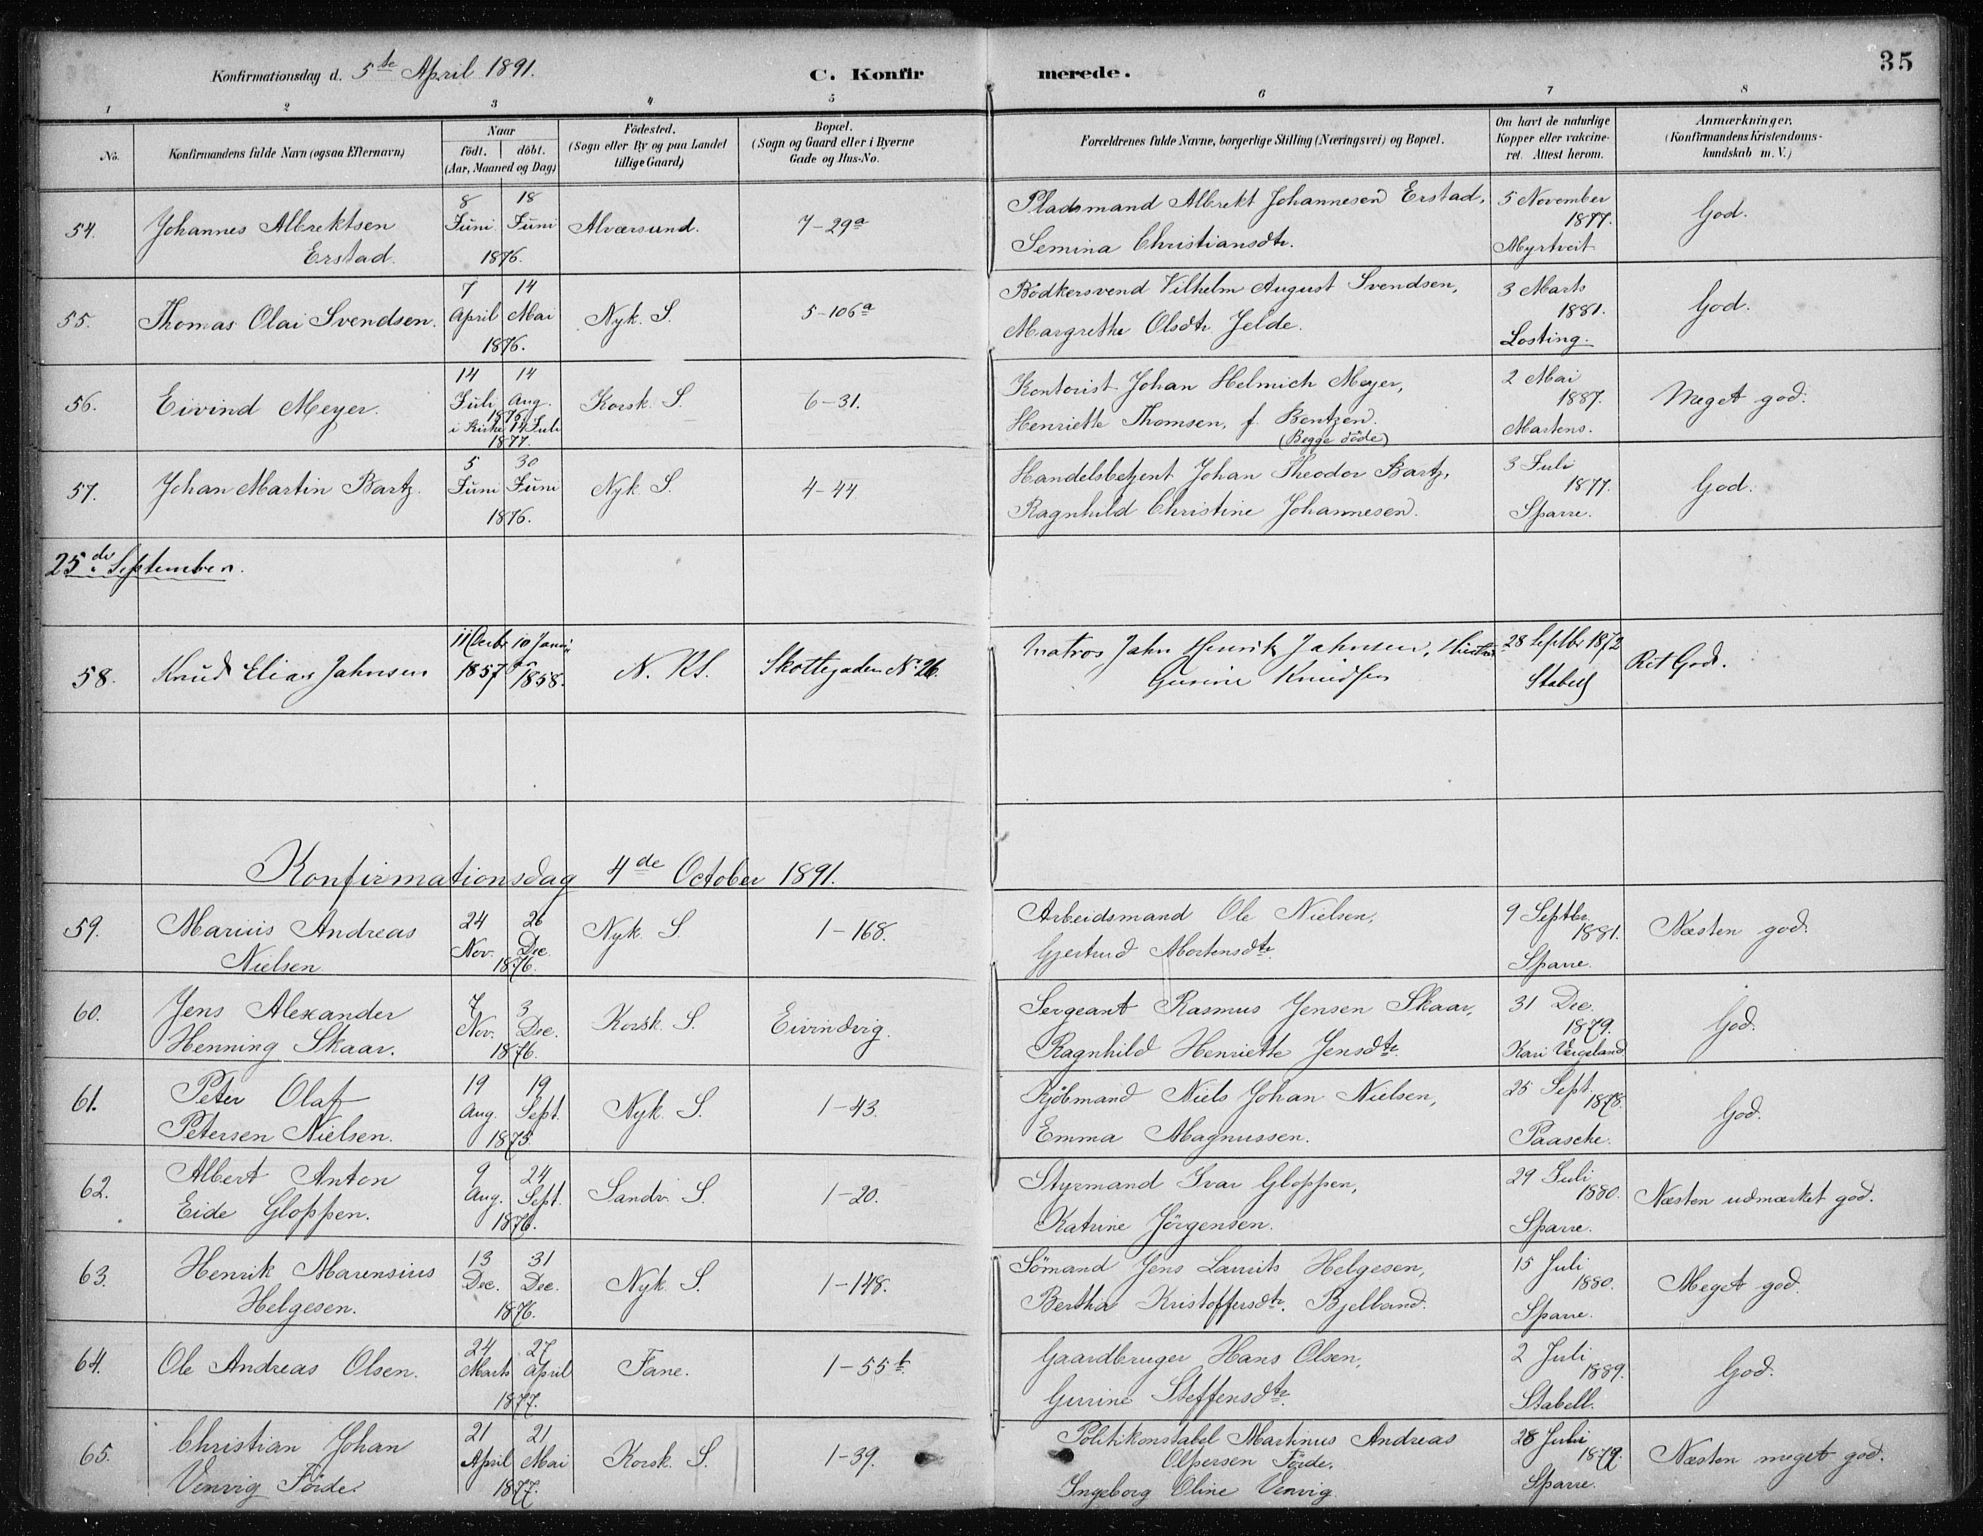 35
Konfirmationsdag d. 5te April 1891. C. Konfirmerede.
1 2 3 4 5 6 7 8
No. Konfirmandens fulde Navn (ogsaa Efternavn) Naar födt. döbt. (Aar, Maaned og Dag) Födested. (Sogn eller By og paa Landet tillige Gaard) Bopæl. (Sogn og Gaard eller i Byerne Gade og Hus-No. Forældrenes fulde Navne, borgerlige Stilling (Næringsvei) og Bopæl. Om havt de naturlige Kopper eller vakcineret. Attest herom. Anmærkninger. (Konfirmandens Kristendomskundskab m. V.)
54. Johannes Albrektsen Erstad. 8 Juni 18 Juni 1876. Alværsund. 7-29a Pladsmand Albrekt Johannesen Erstad, Semina Christiansdtr. 5 November 1877. Myrtveit God.
55. Thomas Olai Svendsen. 7 April 14 Mai 1876. Nyk. S. 5-106a Bödkersvend Vilhelm August Svendsen, Margrethe Olsdtr Jelde. 3 Marts 1881. Losting. God.
56. Eivind Meyer. 14 Juli 14 Aug. 1876. i Kirke 14 Juli 1877. Korsk. S. 6-31. Kontorist Johan Helmich Meyer, Henriette Thomsen, f. Bentzen. (Begge döde) 2 Mai 1887. Martens. Meget god.
57. Johan Martin Bartz. 5 Juni 30 Juni 1876. Nyk. S. 4-44 Handelsbetjent Johan Theodor Bartz, Ragnhild Christine Johannesen. 3 Juli 1877. Sparre. God.
25de September.
58. Knud Elias Jahnsen 11 Decbr 1857 10 Januar 1858. N. KS. Skottegaden No 26. Matros Jahn Henrik Jahnsen, Hustru Gurine Knudsen 28 Septbr 1872 Stabell Ret God.
Konfirmationsdag 4de October 1891.
59. Marius Andreas Nielsen. 24 Nov. 26 Dec. 1876. Nyk. S. 1-168. Arbeidsmand Ole Nielsen, Gjertrud Mortensdtr. 9 Septbr. 1881. Sparre. Næsten god.
60. Jens Alexander Henning Skaar. 7 Nov. 3 Dec. 1876. Korsk. S. Eivindvig. Sergeant Rasmus Jensen Skaar, Ragnhild Henriette Jensdtr. 31 Dec. 1879. Kari Vergeland God.
61. Peter Olaf Petersen Nielsen. 19 Aug. 19 Sept. 1875. Nyk. S. 1-43. Kjöbmand Niels Johan Nielsen, Emma Magnussen. 25 Sept. 1878. Paasche. God.
62. Albert Anton Eide Gloppen. 9 Aug. 24 Sept. 1876. Sandv. S. 1-20. Styrmand Ivar Gloppen, Katrine Jörgensen. 29 Juli 1880. Sparre. Næsten udmærket god.
63. Henrik Marensius Helgesen. 13 Dec. 31 Dec. 1876. Nyk. S. 1-148. Sömand Jens Laurits Helgesen, Bertha Kristoffersdtr. Bjelland. 15 Juli 1880. Sparre. Meget god.
64. Ole Andreas Olsen. 24 Marts 27 April 1877. Fane. 1-55b Gaardbruger Hans Olsen, Gurine Steffensdtr. 2 Juli 1889. Stabell. God.
65. Christian Johan Venvig Förde. 21 April 21 Mai 1877. Korsk. S. 1-39. Politikonstabel Martinus Andreas Olpersen Förde, Ingeborg Oline Venvig. 28 Juli 1879. Sparre. Næsten meget god.